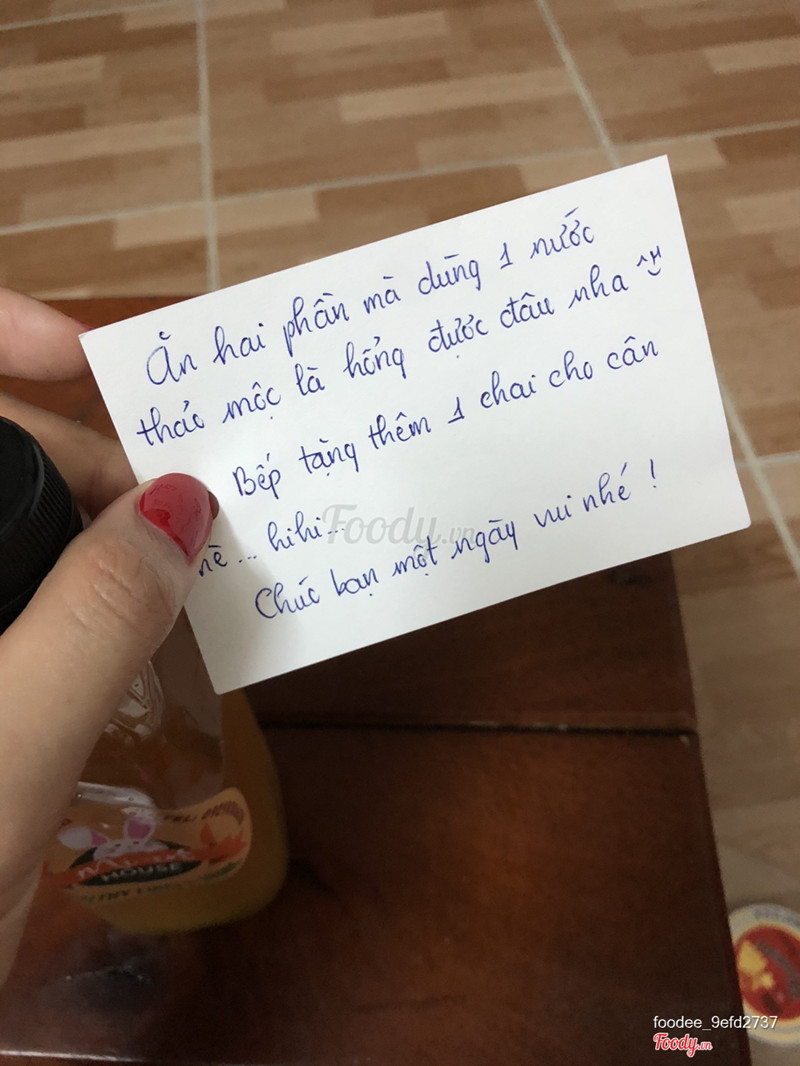 Ăn hai phần mà dùng 1 nước
thảo mộc là hổng được đâu nha
Bếp tặng thêm 1 chai cho cân
nè... hihi...
Chúc bạn một ngày vui nhé!
Foody.vn
foodee_9efd2737
Foody.vn